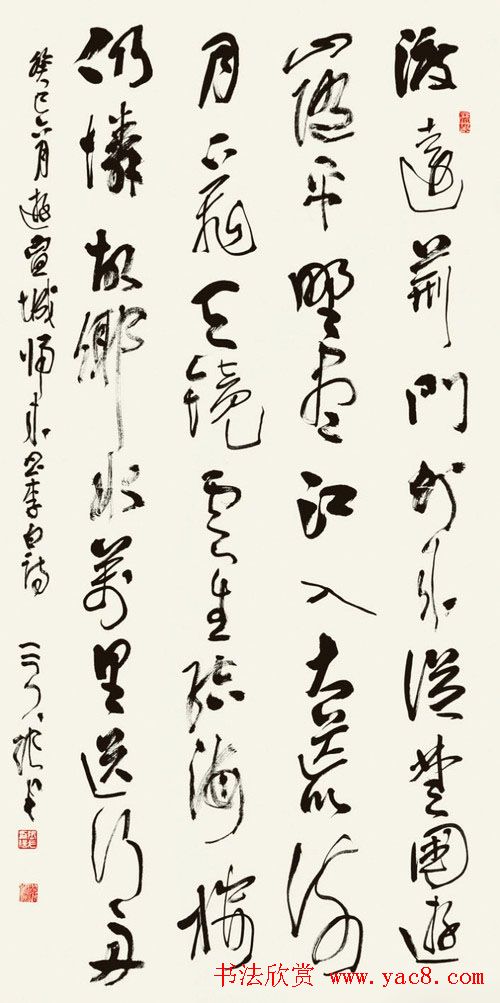 渡遠荊門外来從楚國遊
山隨平野盡江入大荒流
月下飛天鏡雲生結海樓
仍憐故鄉水萬里送行舟
癸巳六月遊宣城歸来書李白詩
书法欣赏 www.yac8.com